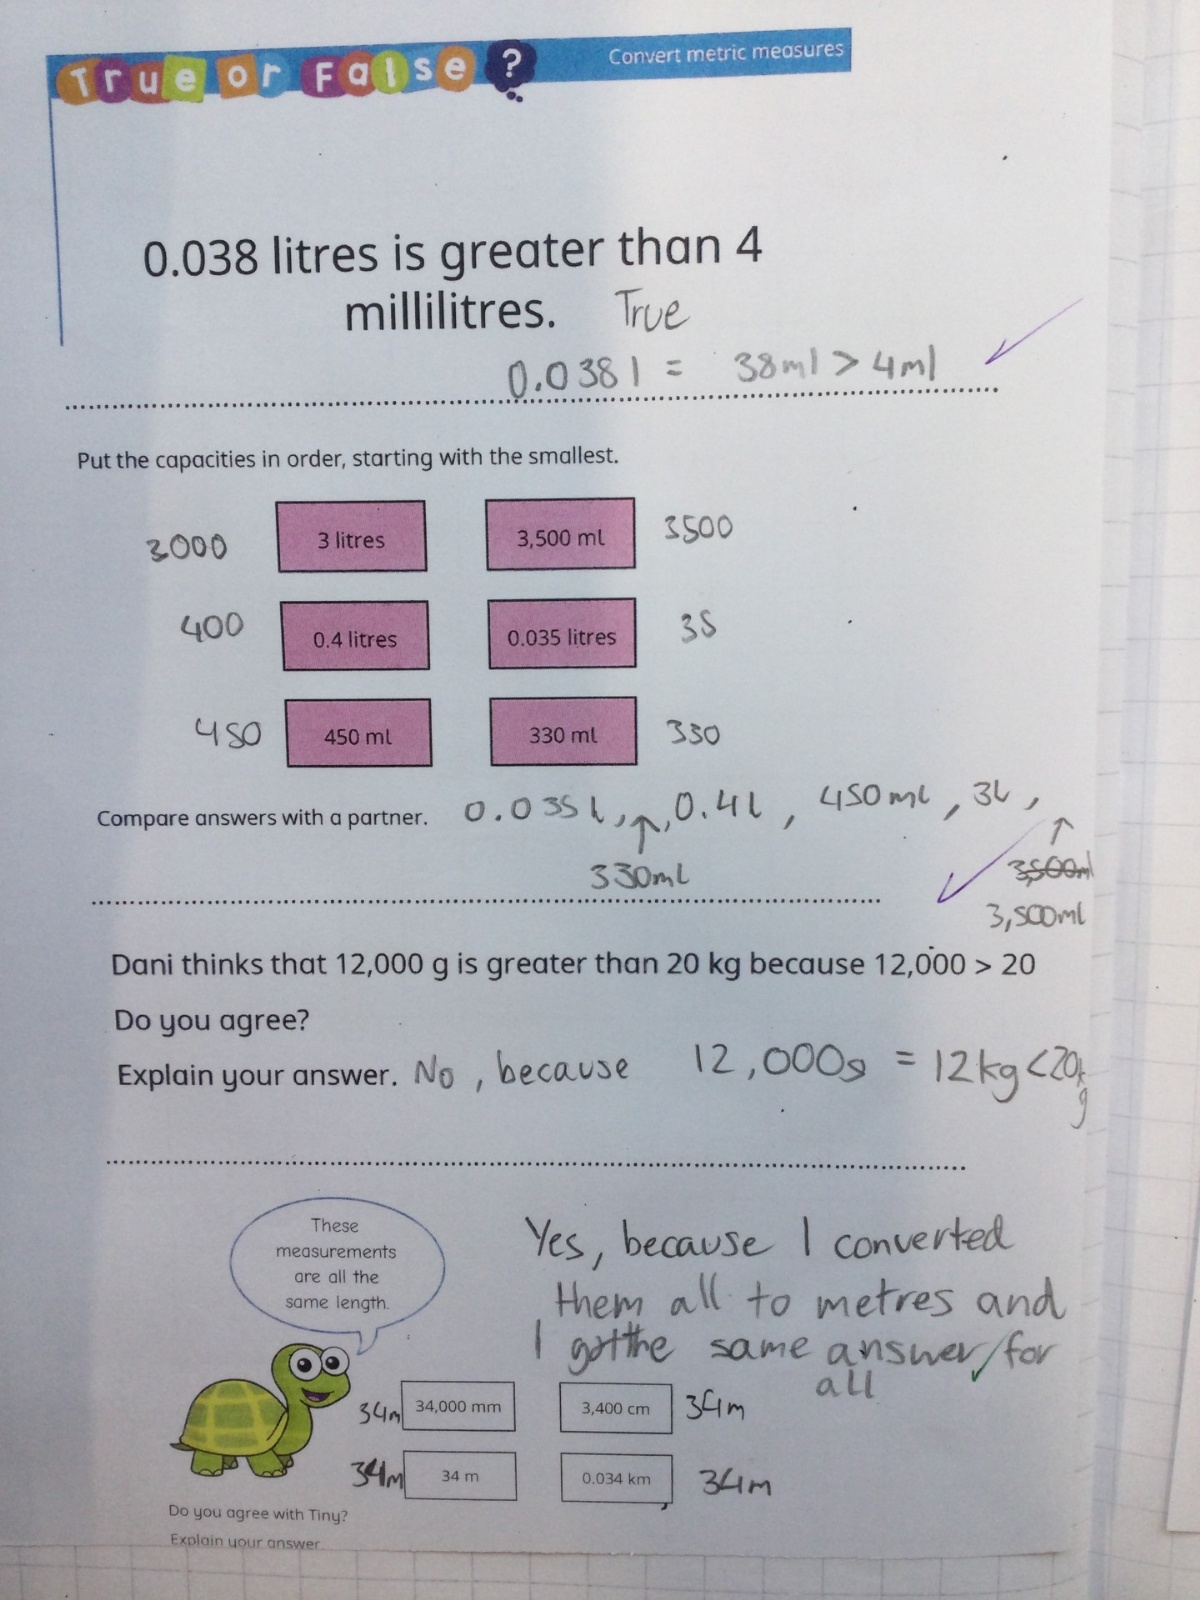 True or False ?
Convert metric measures
0.038 litres is greater than 4
millilitres. True
0.038 l = 38ml > 4ml
Put the capacities in order, starting with the smallest.
3000 3 litres 3,500 ml 3500
400 0.4 litres 0.035 litres 35
450 450 ml 330 ml 330
Compare answers with a partner. 0.035 l, ↑, 0.4 l, 450ml, 3L, ↑
330ml
3,500ml
3,500ml
Dani thinks that 12,000 g is greater than 20 kg because 12,000 > 20
Do you agree?
Explain your answer. No, because 12,000g = 12kg < 20kg
These
measurements
are all the
same length.
Yes, because I converted
them all to metres and
I got the same answer for
all
34m 34,000 mm 3,400 cm 34m
34m 34 m 0.034 km 34m
Do you agree with Tiny?
Explain your answer